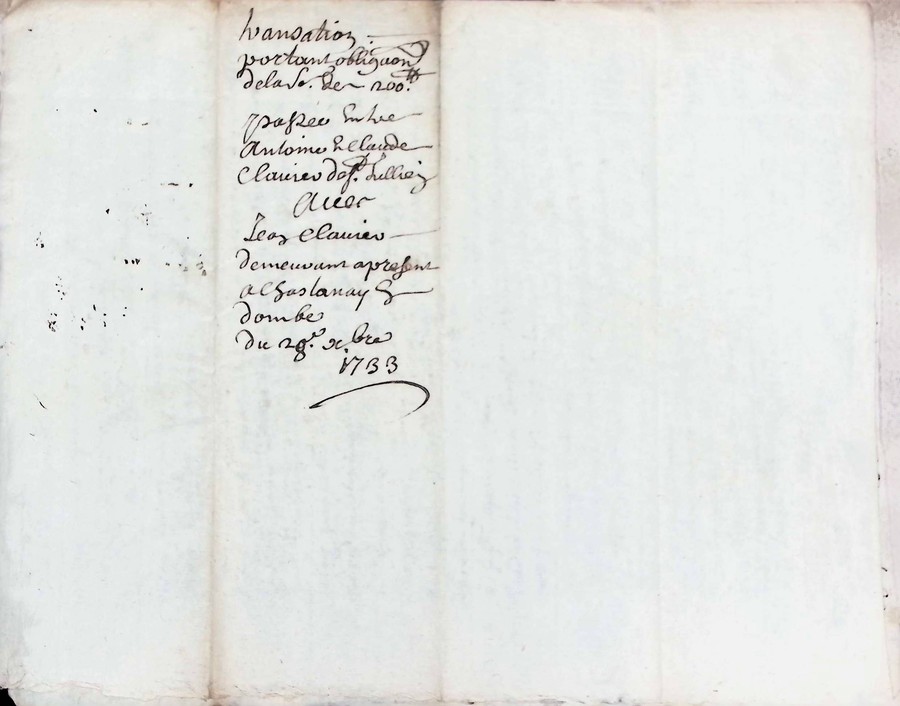 transation
portant obligaon
dela so. de 200.tt
passée Entre
Antoine & Claude
Clavier de st. Jullien
Avec
Jean Clavier
demeurant apresent
a Chastanay En
dombe
du 28.e xbre
1733